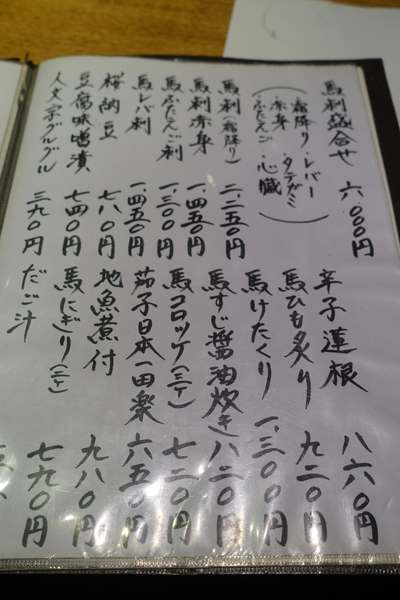 馬刺盛合せ 六.〇〇〇円
（霜降り・レバー
赤身・タテガミ
ふたえご 心臓）
馬刺（霜降り） 二.二五〇円
馬刺赤身 一.四五〇円
馬ふたえご刺 一.三〇〇円
馬レバ刺 一.四五〇円
桜納豆 七八〇円
豆腐味噌漬 七四〇円
人文字グルグル 三九〇円
辛子蓮根 八六〇円
馬ひも炙り 九二〇円
馬けたくり 一.三〇〇円
馬すじ醤油炊き 八二〇円
馬コロッケ（二ヶ） 七二〇円
茄子日本一田楽 六五〇円
地魚煮付 九八〇円
馬にぎり（二ヶ） 七九〇円
だご汁